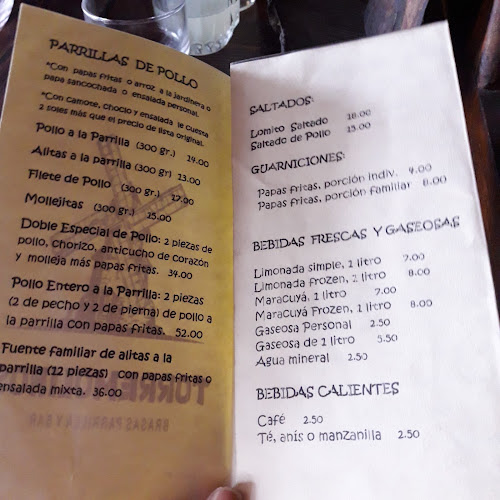 PARRILLAS DE POLLO
*Con papas fritas o arroz a la jardinera o
papa sancochada o ensalada personal.
*Con camote, choclo y ensalada le cuesta
2 soles más que el precio de lista original.
Pollo a la Parrilla (300 gr.) 14.00
Alitas a la parrilla (300 gr) 13.00
Filete de Pollo (300 gr.) 17.00
Mollejitas (300 gr.) 15.00
Doble Especial de Pollo: 2 piezas de
pollo, chorizo, anticucho de corazón
y molleja más papas fritas. 34.00
Pollo Entero a la Parrilla: 2 piezas
(2 de pecho y 2 de pierna) de pollo a
la parrilla con papas fritas. 52.00
Fuente familiar de alitas a la
parrilla (12 piezas) con papas fritas o
ensalada mixta. 36.00
BRASAS PARRILLA Y BAR
SALTADOS:
Lomito Saltado 18.00
Saltado de Pollo 15.00
GUARNICIONES:
Papas fritas, porción indiv. 4.00
Papas fritas, porción familiar 8.00
BEBIDAS FRESCAS Y GASEOSAS
Limonada simple, 1 litro 7.00
Limonada frozen, 1 litro 8.00
Maracuyá, 1 litro 7.00
Maracuyá Frozen, 1 litro 8.00
Gaseosa Personal 2.50
Gaseosa de 1 litro 5.50
Agua mineral 2.50
BEBIDAS CALIENTES
Café 2.50
Té, anís o manzanilla 2.50